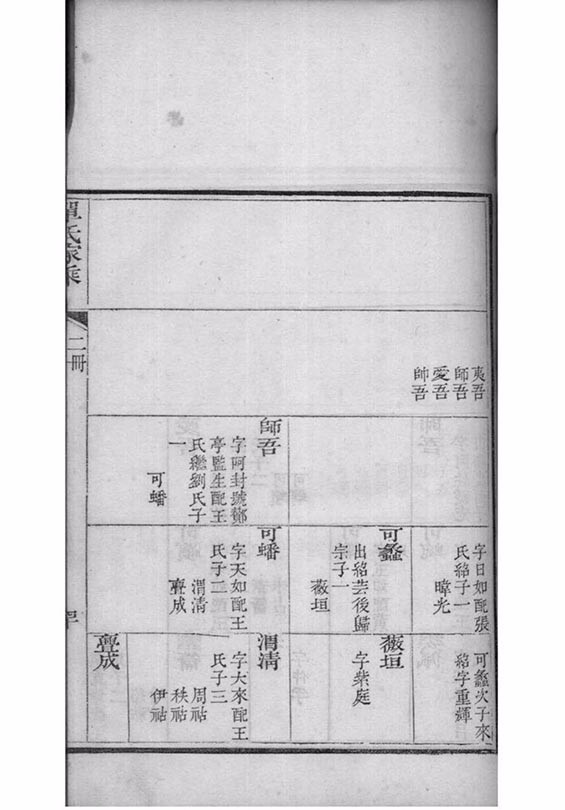 夷吾
師吾
愛吾
帥吾
師吾
字阿封號鄧
亭監生配王
氏繼劉氏子
一
可蟠
字日如配張
氏絡子一
暐光
可蠡
出紹芸後歸
宗子一
薇垣
可蟠
字天如配王
氏子二
渭清
亹成
可蠡次子來
紹字重輝
薇垣
字紫庭
渭清
字大來配王
氏子三
周祜
秩祜
伊祜
亹成
單氏家乘
二冊